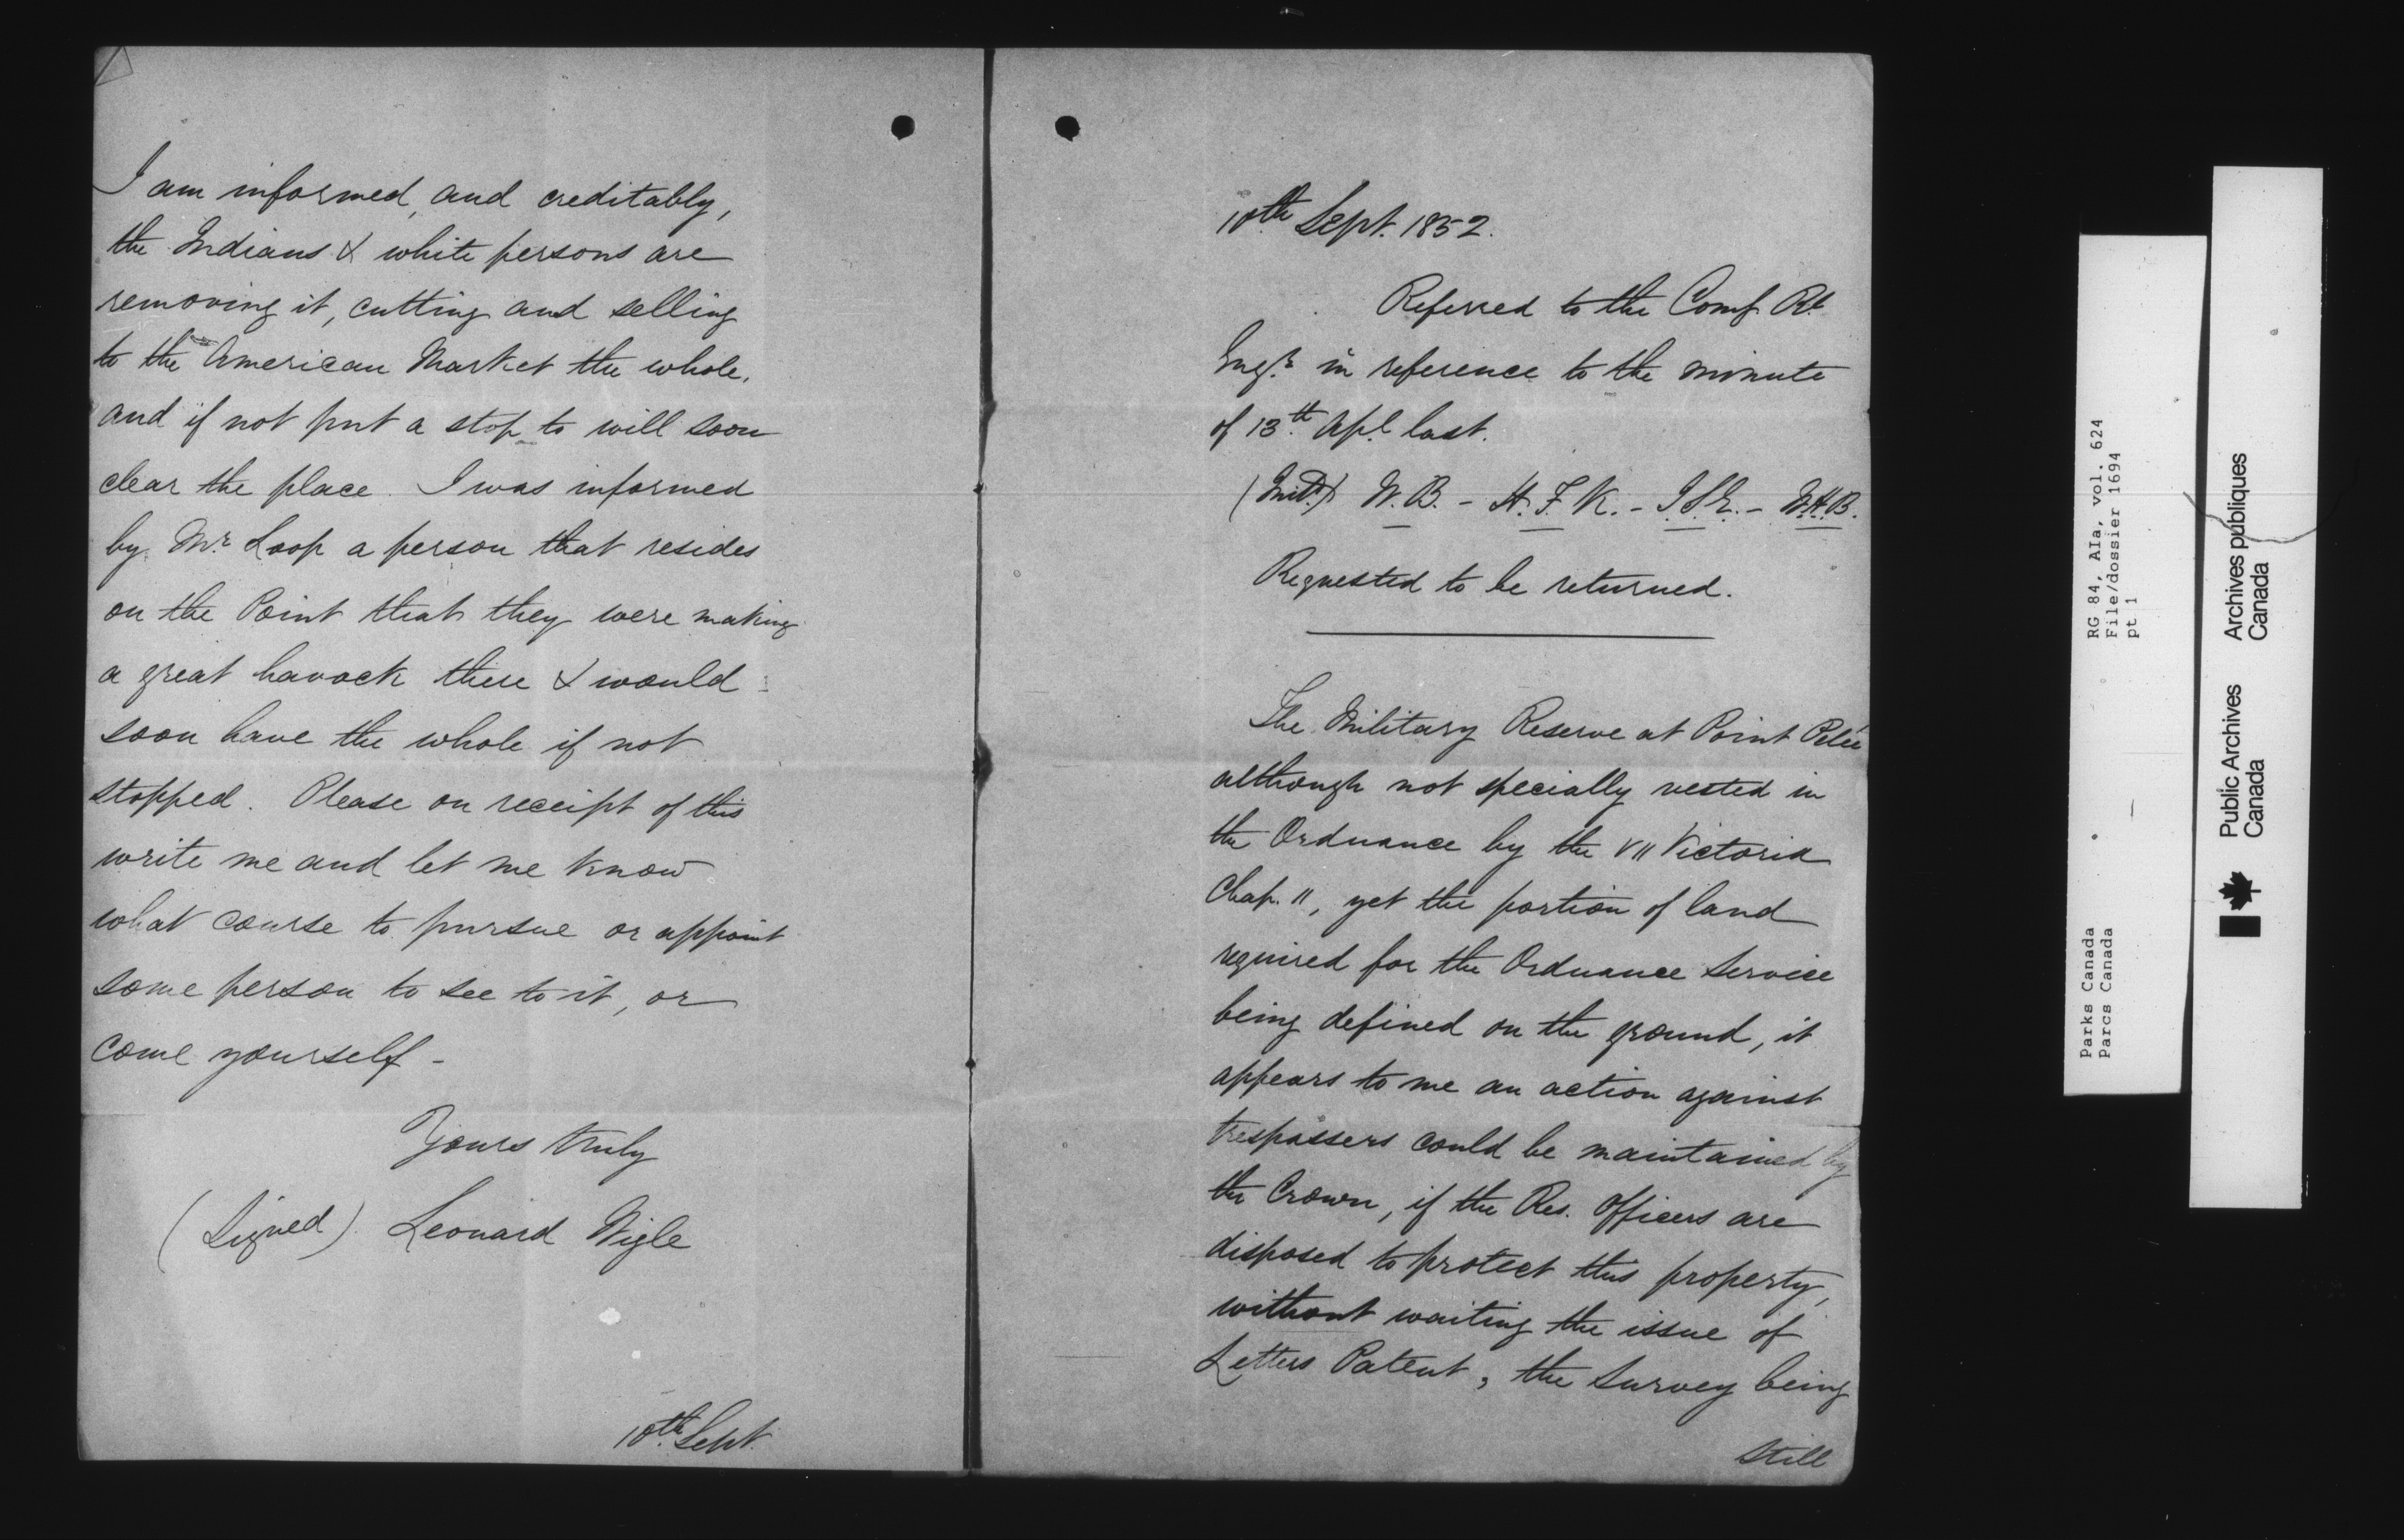 I am informed, and creditably,
the Indians & white persons are
removing it, cutting and selling
to the American Market the whole,
and if not put a stop to will soon
clear the place. I was informed
by Mr. Loop a person that resides
on the Point that they were making
a great havock there & would
soon have the whole if not
stopped. Please on receipt of this
write me and let me know
what course to pursue or appoint
some person to see to it, or
come yourself -
Yours truly
(Signed). Leonard Wigle
10th. Sept.
10th. Sept. 1852.
Referred to the Comg. Rl.
Engr. in reference to the minute
of 13th. Apl. last.
(Initd.) W.B. - H.F.K. - - W.H.B.
Requested to be returned.
The Military Reserve at Point Pelée
although not specially vested in
the Ordnance by the VII Victoria
Chap. 11, yet the portion of land
required for the Ordnance Service
being defined on the ground, it
appears to me an action against
trespassers could be maintained by
the Crown, if the Res. Officers are
disposed to protect this property,
without waiting the issue of
Letters Patent, the survey being
still
Parks Canada RG 84, AIa, vol. 624
Parcs Canada File/dossier 1694
pt.1
Public Archives Archives publiques
Canada Canada